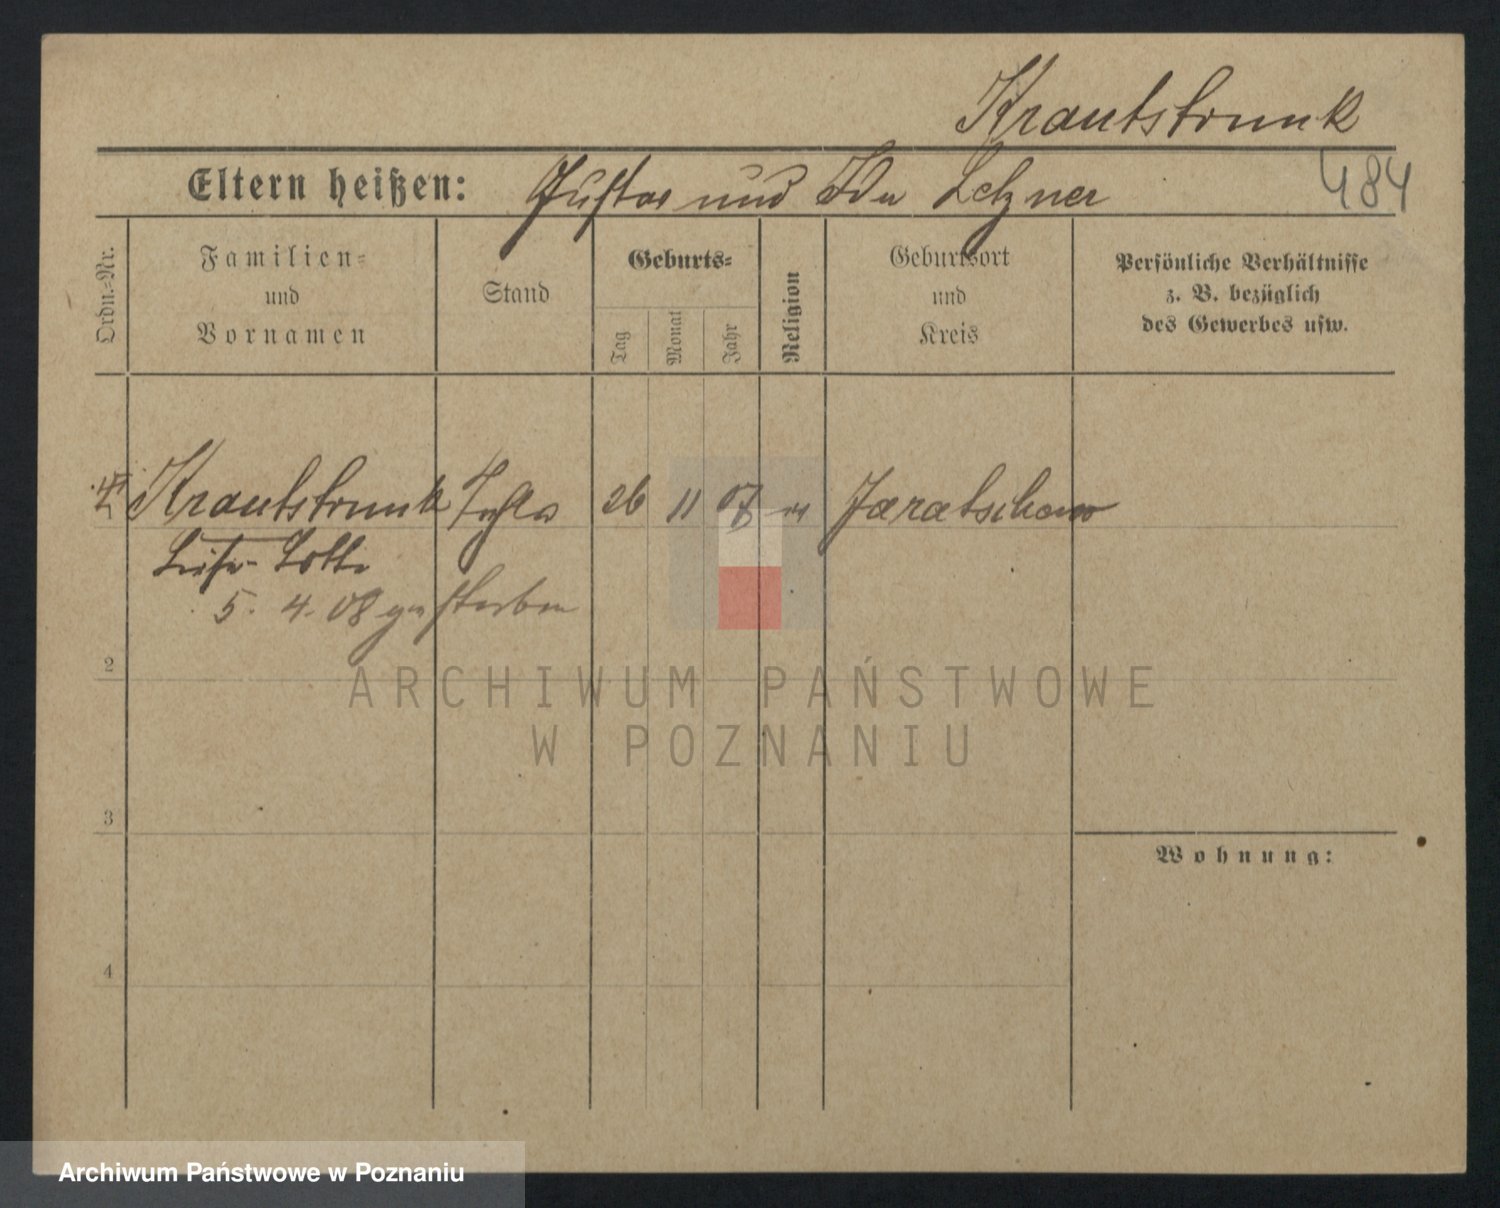 Krautstrunk
Eltern heißen: Gustav und Ida Letzner 484
Ordn.-Nr.
Familien-
und
Vornamen
Stand
Geburts-
Tag
Monat
Jahr
Religion
Geburtsort
und
Kreis
Persönliche Verhältnisse
z. B. bezüglich
des Gewerbes usw.
Krautstrunk 26 11 07 ev Jaratschewo
Liese-Lotte
5. 4. 08 gestorben
2
3
4
Wohnung:
ARCHIWUM PAŃSTWOWE
W POZNANIU
Archiwum Państwowe w Poznaniu